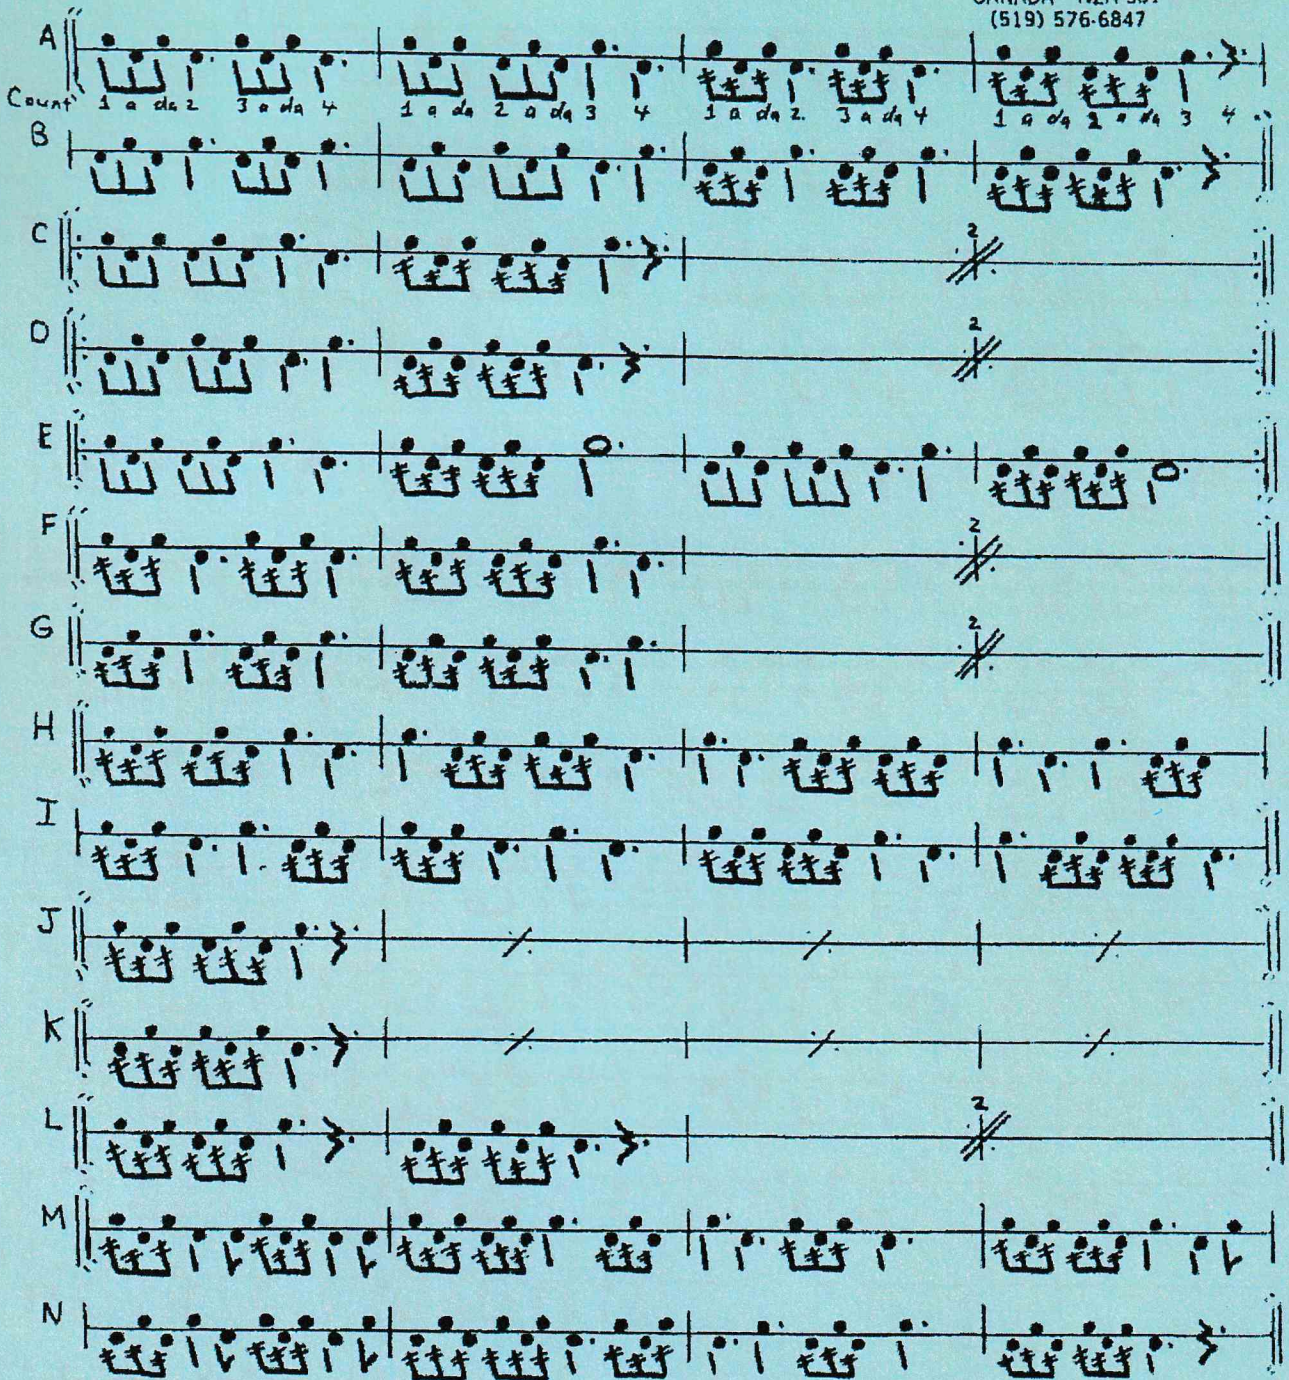 (519) 576-6847
A
Count 1 a da 2 3 a da 4 1 a da 2 a da 3 4 1 a da 2. 3 a da 4 1 a da 2 a da 3 4
B
C 2
D 2
E
F 2
G 2
H
I
J
K
L 2
M
N